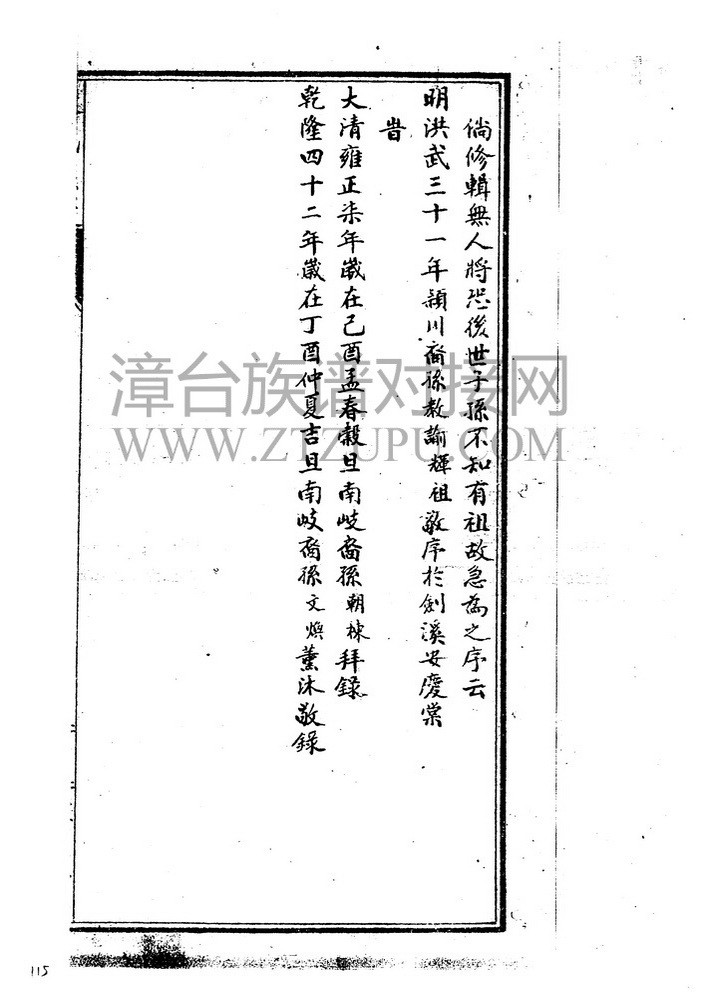 倘修輯無人將恐後世子孫不知有祖故急為之序云
明洪武三十一年潁川裔孫教諭輝祖敬序於劍溪安慶棠
旹
大清雍正柒年歲在己酉孟春穀旦南岐裔孫朝棟拜錄
乾隆四十二年歲在丁酉仲夏吉旦南岐裔孫文煥薰沐敬錄
漳台族谱对接网
WWW.ZTZUPU.COM
115